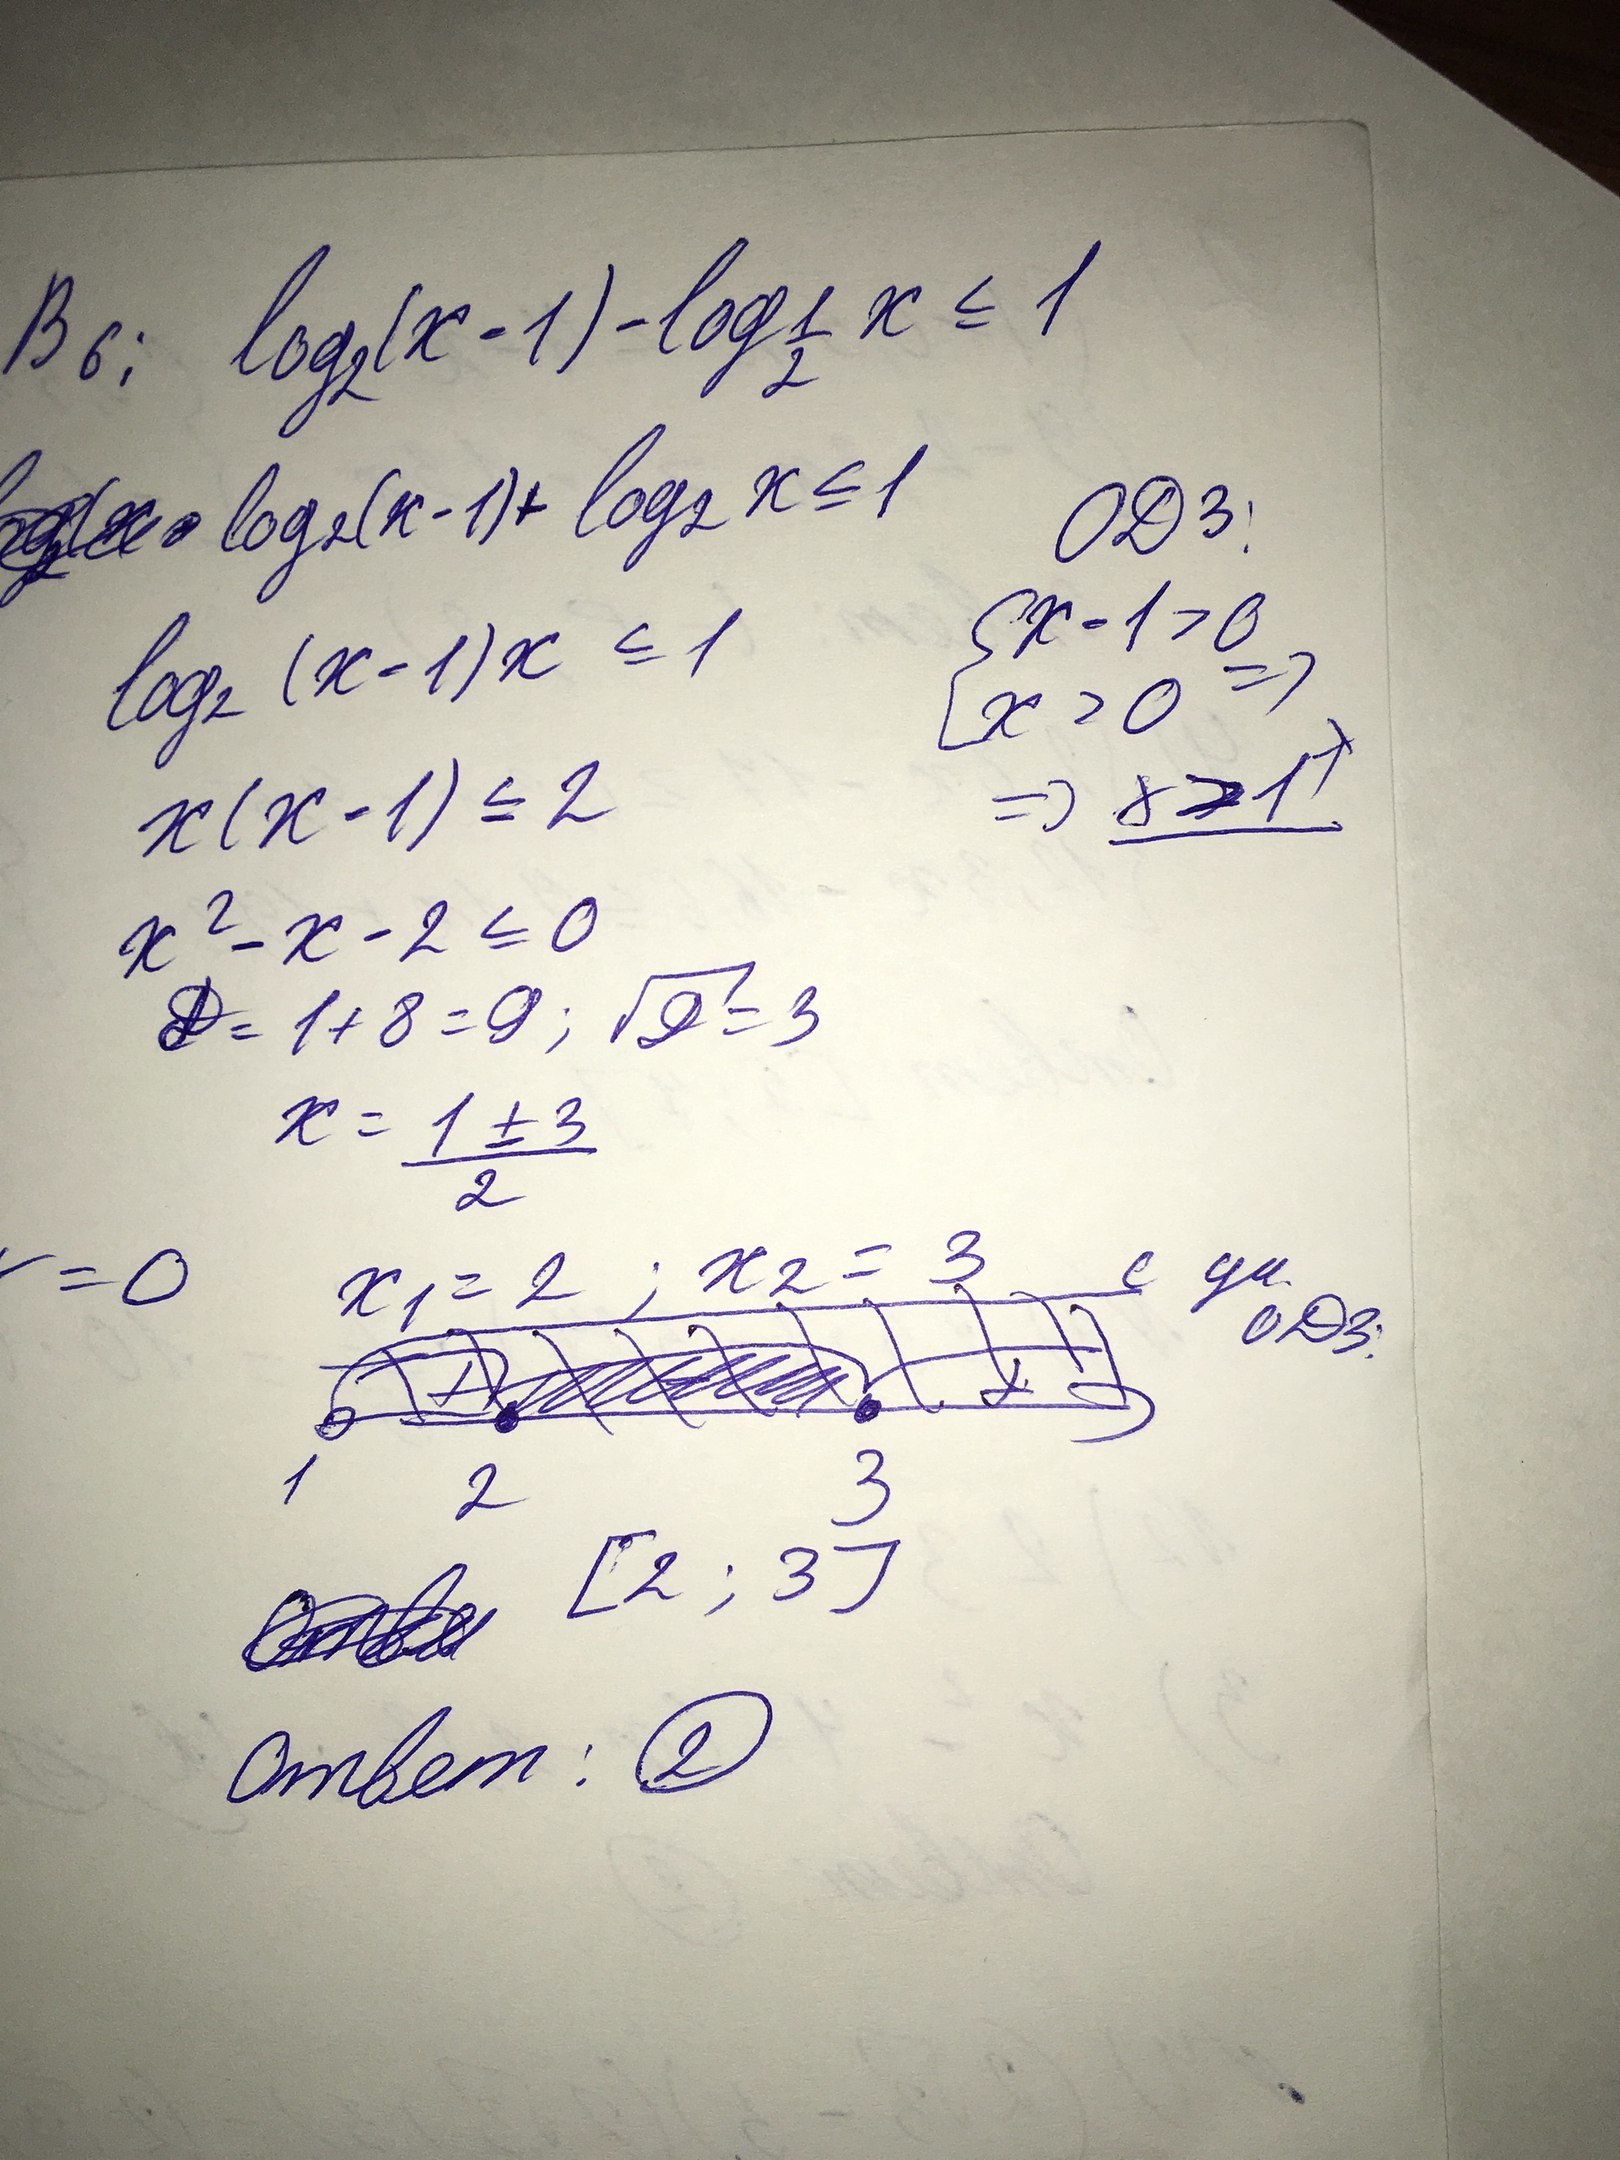 В6: log₂(x-1)-log½ x ≤ 1
log₂(x-1)+ log₂ x ≤ 1
ОДЗ:
log₂ (x-1)x ≤ 1
{x-1>0
x>0 =>
=> x>1
x(x-1) ≤ 2
x²-x-2 ≤ 0
D = 1+8=9; √9=3
x = (1±3)/2
=0
x₁=2 ; x₂=3
ОДЗ:
+ - +
1 2 3
[2;3]
Ответ: 2